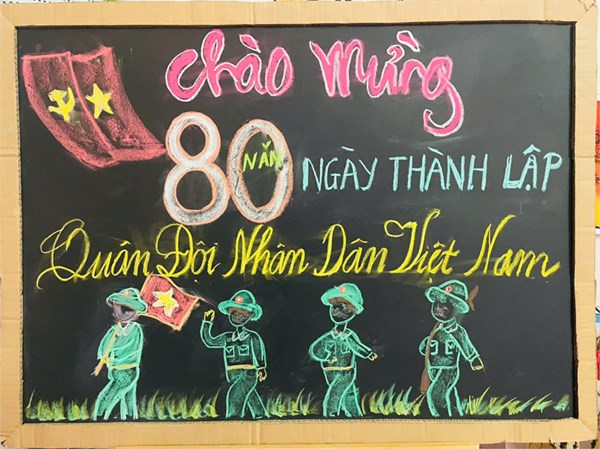 Chào mừng
80 NĂM NGÀY THÀNH LẬP
Quân Đội Nhân Dân Việt Nam